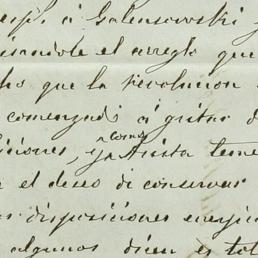 á Galensowski
sandole el arreglo que
ho que la Revolucion
comenzado á gritar d
siciones, y como Arista teme
el deseo di conservar
as disposiciones enérgic
algunos dicen es tot